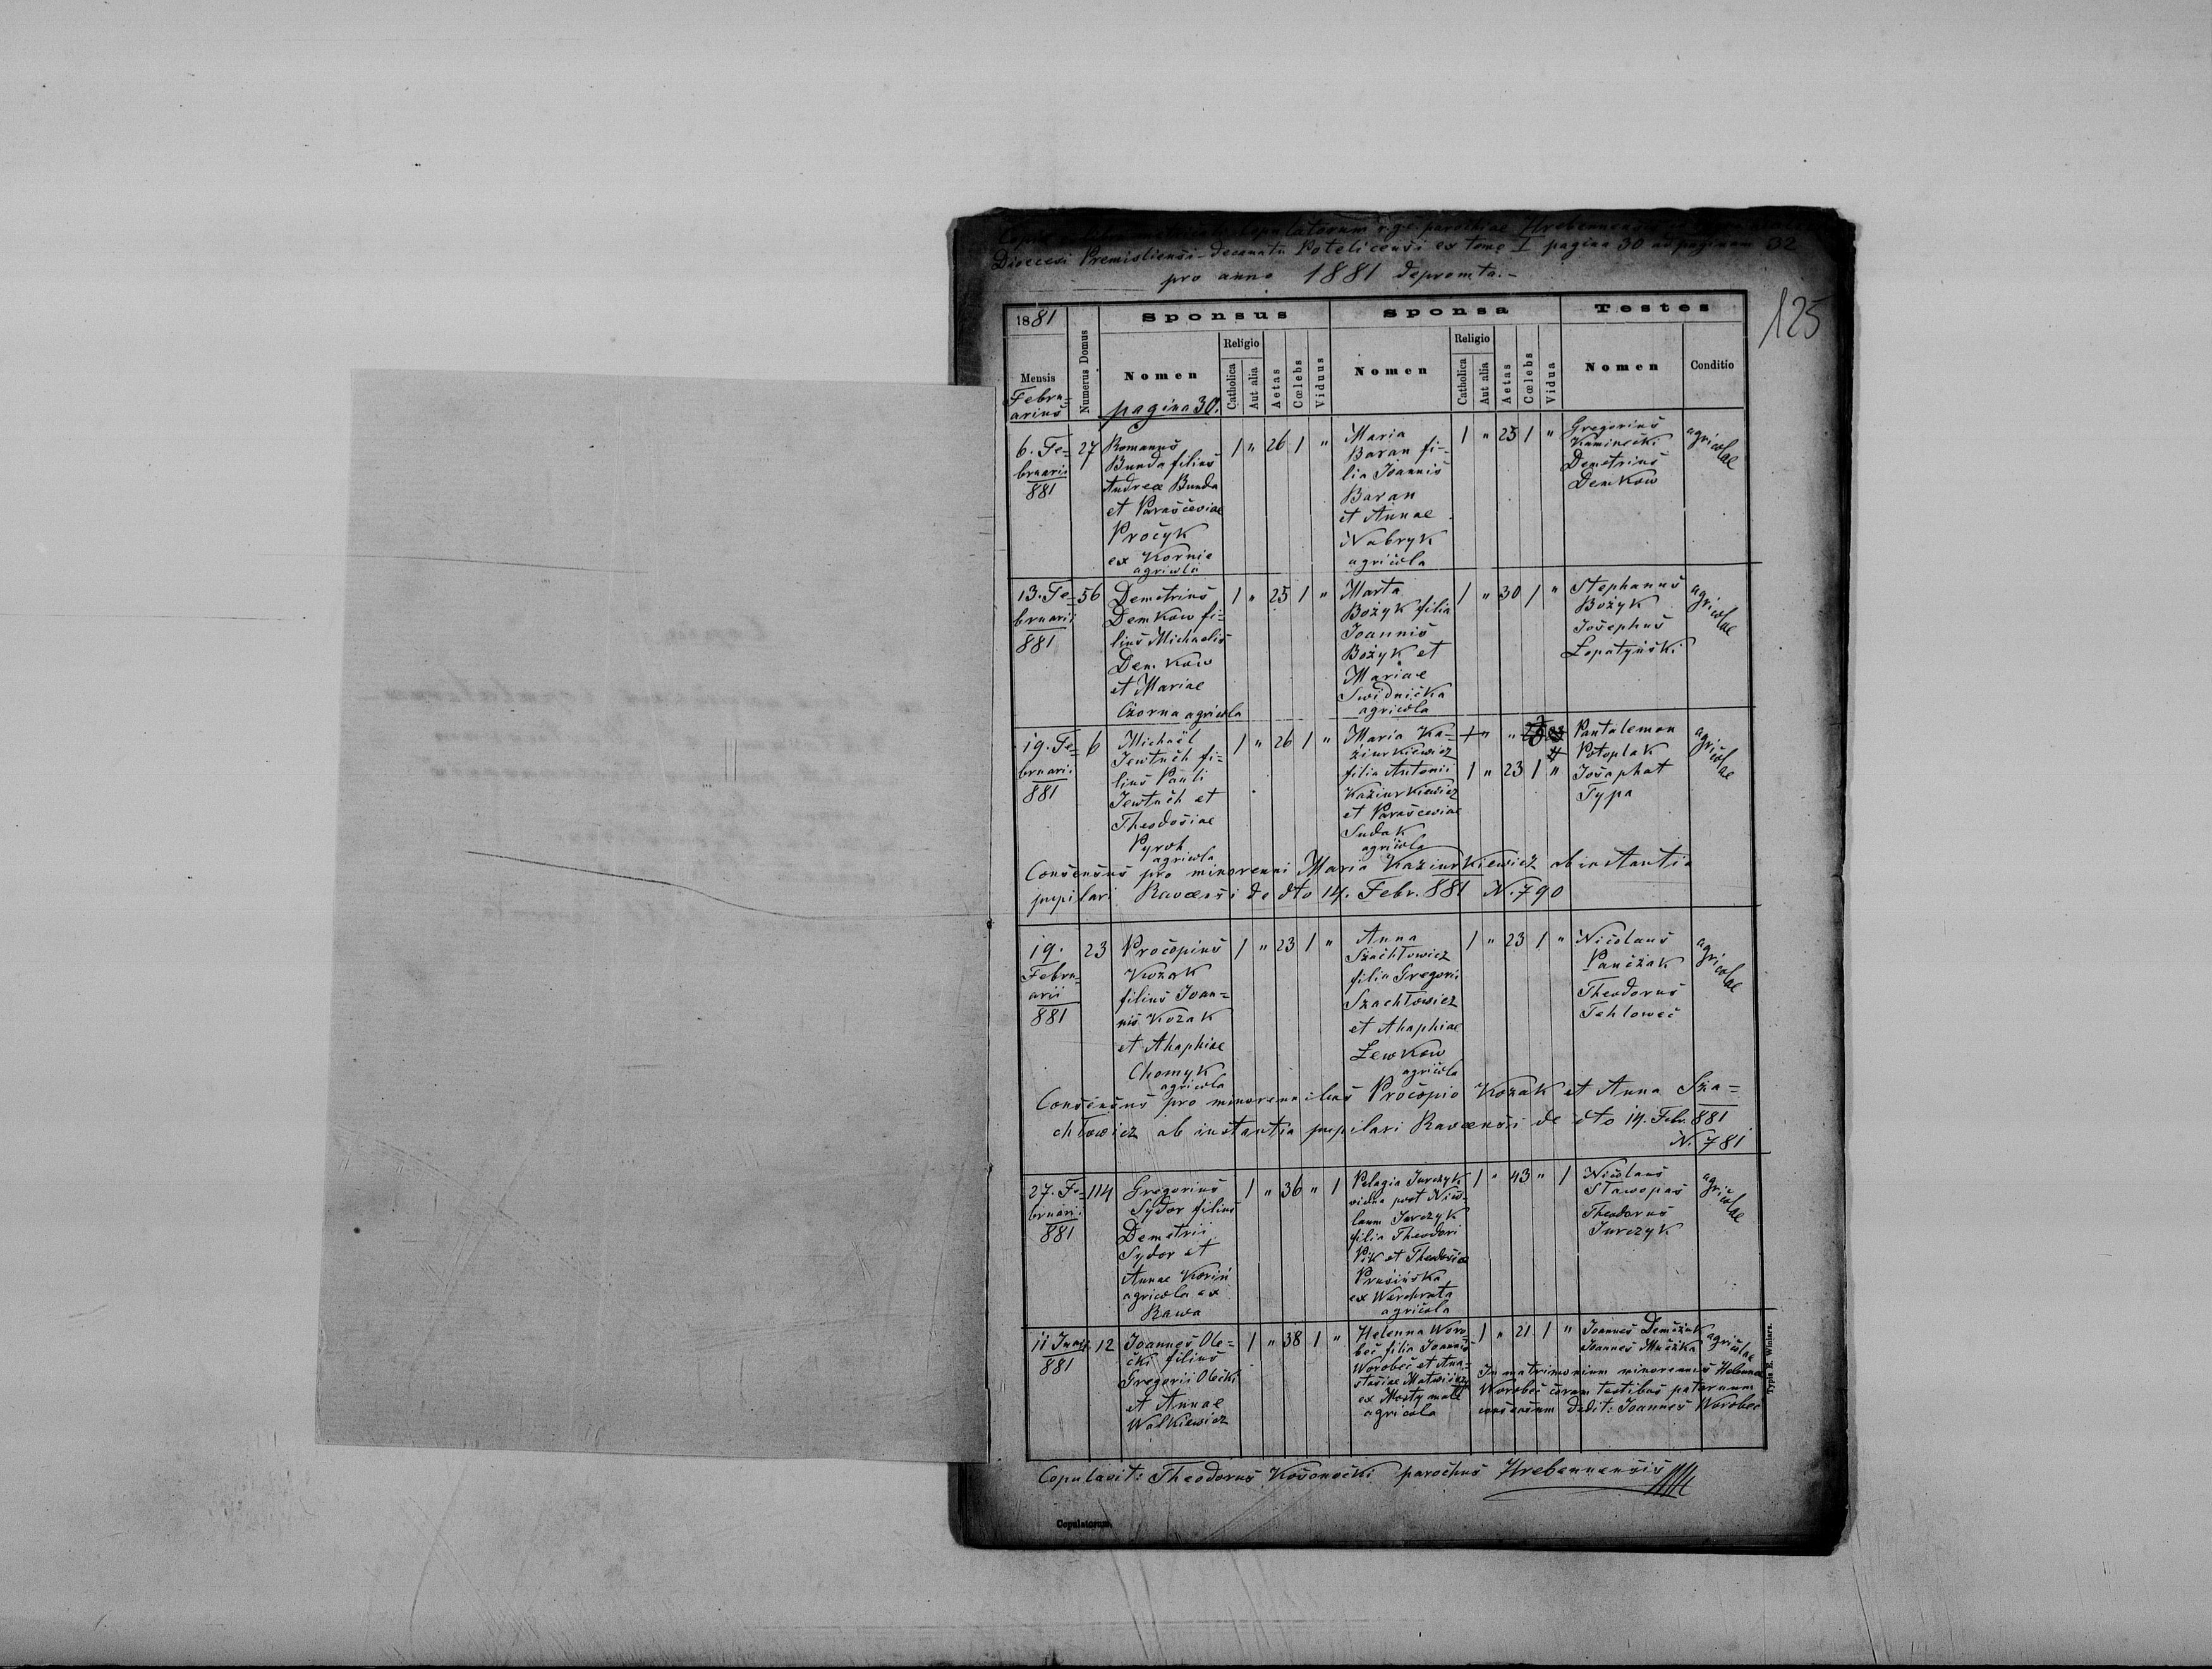 Copulatorum r. g. c. parochiae Hrebennensis
Dioecesi Premisliensi - decanatu Potelicensi ex tomo I pagina 30 ad paginam 32
pro anno 1881 depromta.-
125
1881
Numerus Domus
Sponsus
Sponsa
Testes
Mensis
Nomen
Religio
Catholica
Aut alia
Aetas
Cœlebs
Viduus
Nomen
Religio
Catholica
Aut alia
Aetas
Cœlebs
Vidua
Nomen
Conditio
Febru=
arius
pagina 30.
6. Fe=
bruarii
881
27
Romanus
Bunda filius
Andreæ Bunda
et Parasceviae
Procyk
ex Kornie
agricola
1 " 26 1 "
Maria
Baran fi=
lia Joannis
Baran
et Annae
Nabryk
agricola
1 " 25 1 "
Gregorius
Kaminecki
Demetrius
Demkow
agricolae
13. Fe=
bruarii
881
56
Demetrius
Demkow fi=
lius Michaelis
Demkow
et Mariae
Czorna agricola
1 " 25 1 "
Marta
Božyk filia
Joannis
Božyk et
Mariae
Swidnicka
agricola
1 " 30 1 "
Stephanus
Božyk
Josephus
Łopatyński
agricolae
19. Fe=
bruarii
881
6
Michaël
Jewtuch fi=
lius Pauli
Jewtuch et
Theodosiae
Pyroh
agricola
1 " 26 1 "
Maria Ka=
ziurkiewicz
filia Antonii
Kaziurkiewicz
et Parasceviae
Sudak
agricola
1 " 23 1 "
Pantalemon
Potoplak
Josaphat
Typa
agricolae
Consensus pro minorenni Maria Kaziurkiewicz ab instantia
pupilari Ravensi de dto 14. Febr. 881 N. 790
19.
Febru=
arii
881
23
Procopius
Kozak
filius Joan=
nis Kozak
et Ahaphiae
Chomyk
agricola
1 " 23 1 "
Anna
Szachłowicz
filia Gregorii
Szachłowicz
et Ahaphiae
Lewkow
agricola
1 " 23 1 "
Nicolaus
Panczak
Theodorus
Tehlowec
agricolae
Consensus pro minorennibus Procopio Kozak et Anna Sza=
chłowicz ab instantia pupilari Ravensi de dto 14. Febr. 881
N. 781
27. Fe=
bruarii
881
114
Gregorius
Sydor filius
Demetrii
Sydor et
Annae Koriń
agricola ex
Rawa
1 " 36 " 1
Pelagia Jurczyk
vidua post Nico=
laum Jurczyk
filia Theodori
Pik et Theodosiae
Prusińska
ex Werchrata
agricola
1 " 43 " 1
Nicolaus
Stawopias
Theodorus
Jurczyk
agricolae
11 Junii
881
12
Joannes Ole=
cki filius
Gregorii Olecki
et Annae
Walkiewicz
1 " 38 1 "
Helenna Woro=
bec filia Joannis
Worobec et Ana=
stasiae Matwiicz
ex Mosty małe
agricola
1 " 21 1 "
Joannes Demczuk
Joannes Muczka
agricolae
In matrimonium minorennis Helennae
Worobec coram testibus paternum
consensum dedit: Joannes Worobec
Copulavit: Theodorus Kosonocki parochus Hrebennensis
Copulatorum.
Typis E. Winiarz.